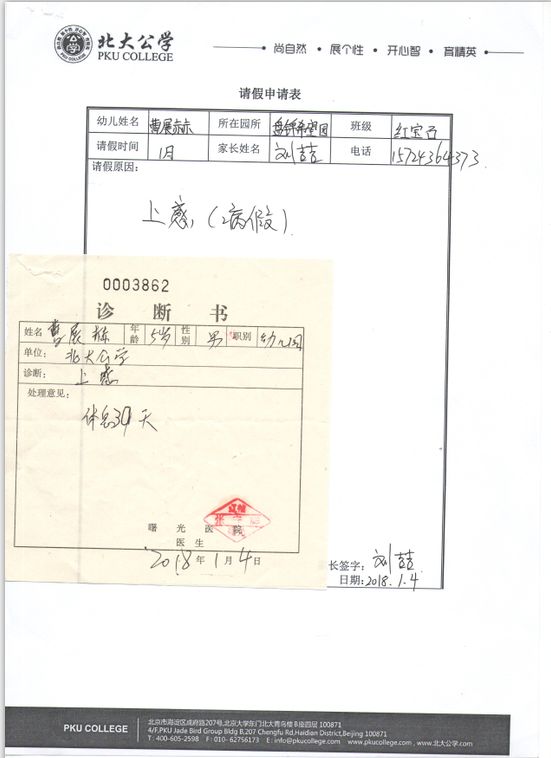 北大公学
PKU COLLEGE
尚自然 • 展个性 • 开心智 • 育精英
请假申请表
幼儿姓名 曹展 所在园所 希望园 班级 红宝石
请假时间 1月 家长姓名 刘喆 电话 15724364373
请假原因:
上感,(病假)
0003862
诊 断 书
姓名 曹展 年龄 5岁 性别 男 职别 幼儿园
单位: 北大公学
诊断: 上感
处理意见:
休息 天
曙 光 医 院
医 生
2018年1月4日
长签字: 刘喆
日期:2018.1.4
PKU COLLEGE
北京市海淀区成府路207号,北京大学东门北大青鸟楼B座四层 100871
4/F,PKU Jade Bird Group Bldg B,207 Chengfu Rd,Haidian District,Beijing 100871
T : 400-605-2598 F : 010- 62756173 E : info@pkucollege.com www.pkucollege.com , www.北大公学.com